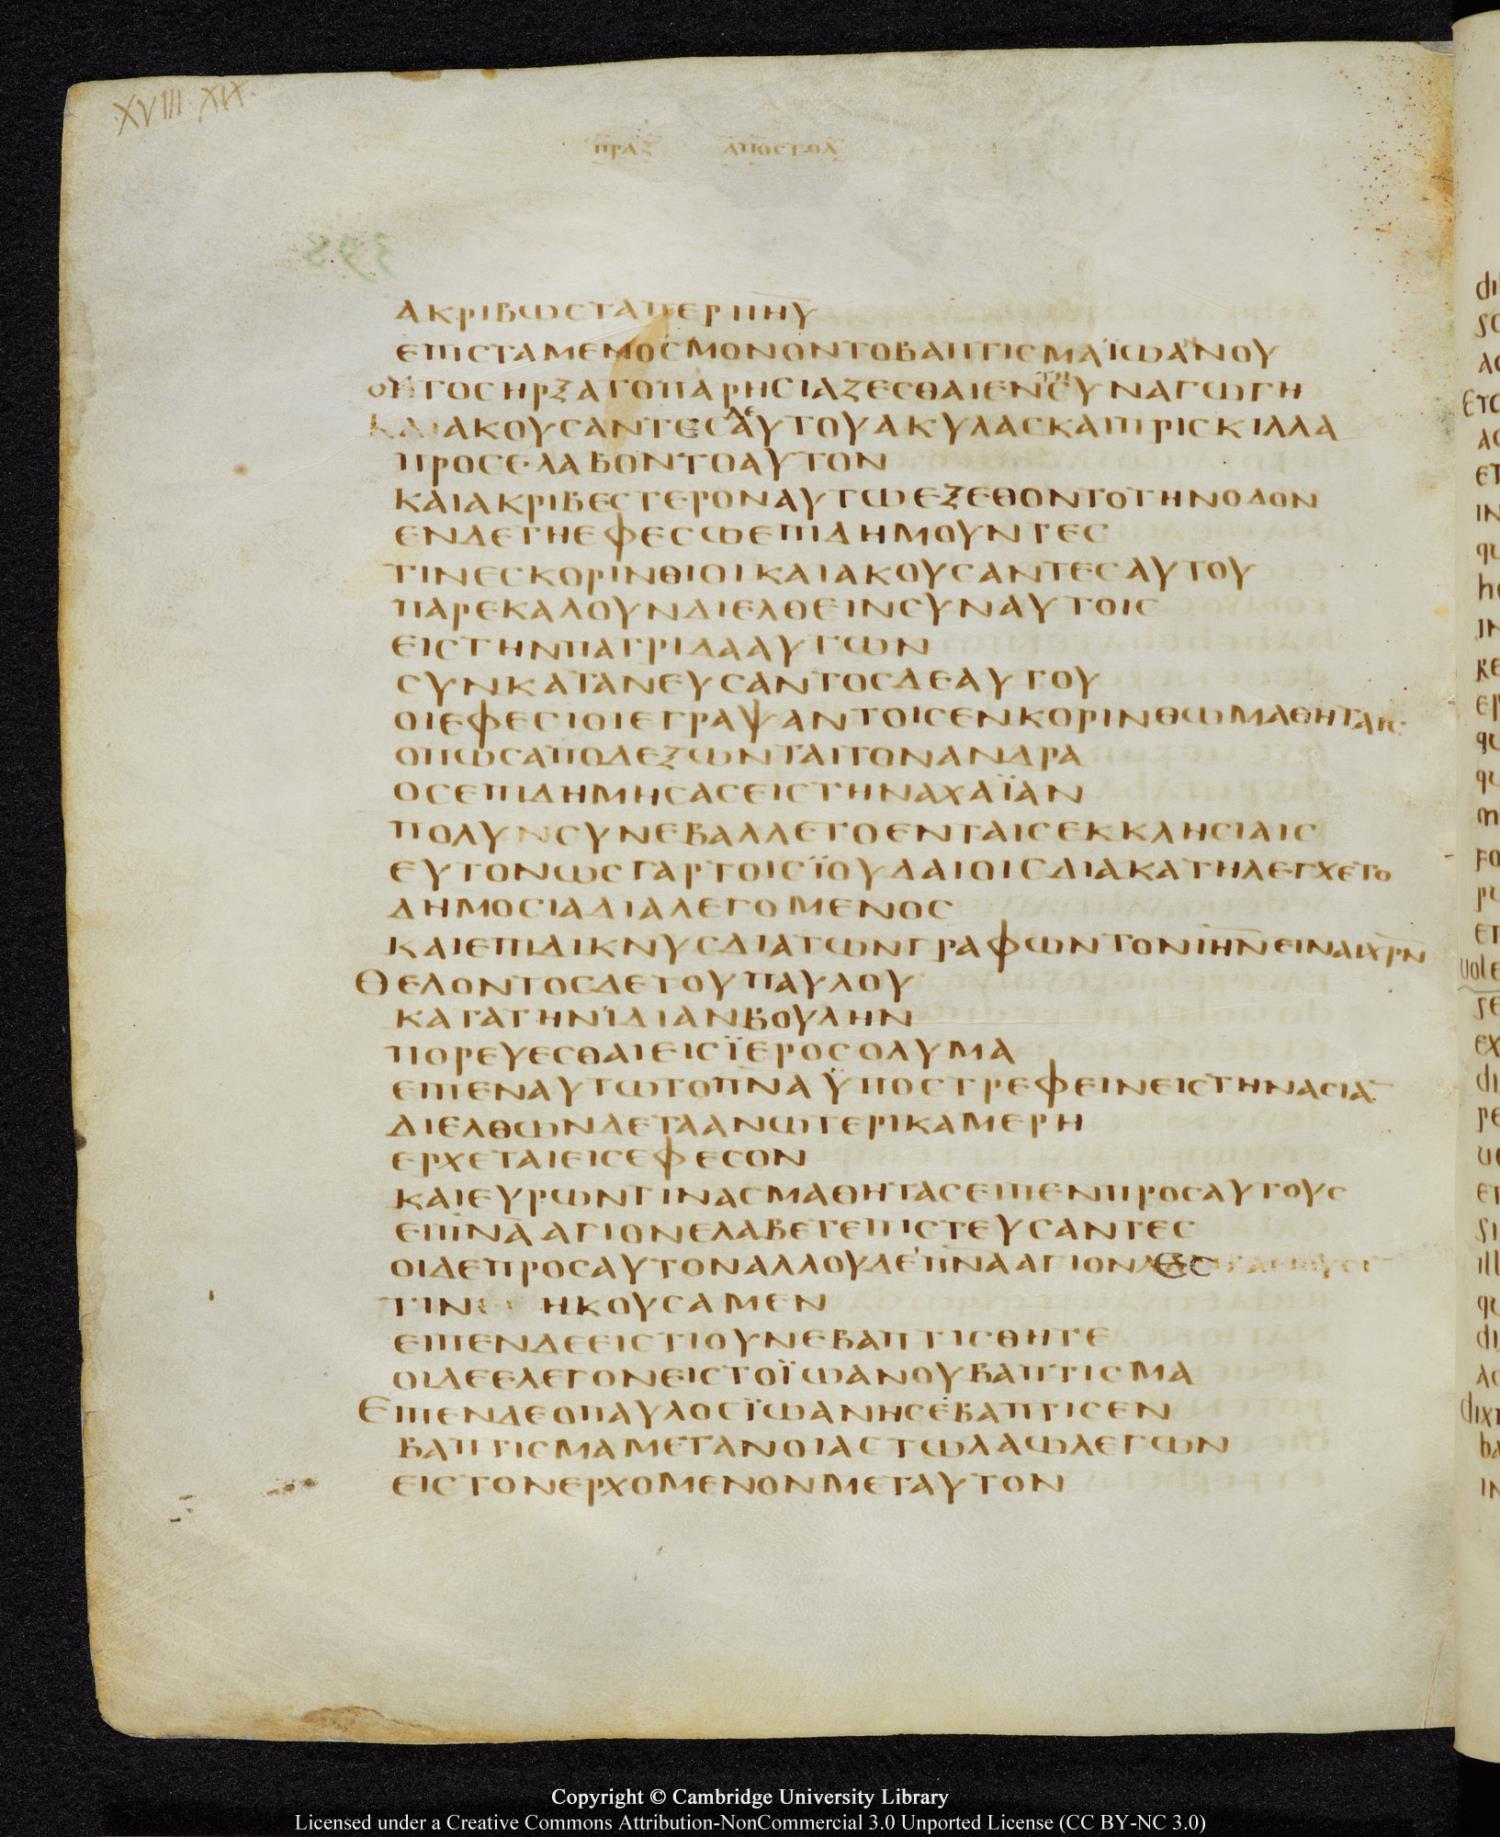 XVIII XIX.
ΠΡΑΞ ΑΠΟΣΤΟΛ
ΑΚΡΙΒΩϹΤΑΠΕΡΙΙΗΥ
ΕΠΙϹΤΑΜΕΝΟϹΜΟΝΟΝΤΟΒΑΠΤΙϹΜΑΪΩΑΝΟΥ
ΟΥΤΟϹΗΡΞΑΤΟΠΑΡΗϹΙΑΖΕϹΘΑΙΕΝΤΗϹΥΝΑΓΩΓΗ
ΚΑΙΑΚΟΥϹΑΝΤΕϹΔΕΑΥΤΟΥΑΚΥΛΑϹΚΑΙΠΡΙϹΚΙΛΛΑ
ΠΡΟϹΕΛΑΒΟΝΤΟΑΥΤΟΝ
ΚΑΙΑΚΡΙΒΕϹΤΕΡΟΝΑΥΤΩΕΞΕΘΟΝΤΟΤΗΝΟΔΟΝ
ΕΝΔΕΤΗΕΦΕϹΩΕΠΙΔΗΜΟΥΝΤΕϹ
ΤΙΝΕϹΚΟΡΙΝΘΙΟΙΚΑΙΑΚΟΥϹΑΝΤΕϹΑΥΤΟΥ
ΠΑΡΕΚΑΛΟΥΝΔΙΕΛΘΕΙΝϹΥΝΑΥΤΟΙϹ
ΕΙϹΤΗΝΠΑΤΡΙΔΑΑΥΤΩΝ
ϹΥΝΚΑΤΑΝΕΥϹΑΝΤΟϹΔΕΑΥΤΟΥ
ΟΙΕΦΕϹΙΟΙΕΓΡΑΨΑΝΤΟΙϹΕΝΚΟΡΙΝΘΩΜΑΘΗΤΑΙϹ
ΟΠΩϹΑΠΟΔΕΞΩΝΤΑΙΤΟΝΑΝΔΡΑ
ΟϹΕΠΙΔΗΜΗϹΑϹΕΙϹΤΗΝΑΧΑΪΑΝ
ΠΟΛΥΝϹΥΝΕΒΑΛΛΕΤΟΕΝΤΑΙϹΕΚΚΛΗϹΙΑΙϹ
ΕΥΤΟΝΩϹΓΑΡΤΟΙϹΪΟΥΔΑΙΟΙϹΔΙΑΚΑΤΗΛΕΓΧΕΤΟ
ΔΗΜΟϹΙΑΔΙΑΛΕΓΟΜΕΝΟϹ
ΚΑΙΕΠΙΔΙΚΝΥϹΔΙΑΤΩΝΓΡΑΦΩΝΤΟΝΙΗΝΕΙΝΑΙΧΡΝ
ΘΕΛΟΝΤΟϹΔΕΤΟΥΠΑΥΛΟΥ
ΚΑΤΑΤΗΝΪΔΙΑΝΒΟΥΛΗΝ
ΠΟΡΕΥΕϹΘΑΙΕΙϹΪΕΡΟϹΟΛΥΜΑ
ΕΙΠΕΝΑΥΤΩΤΟΠΝΑΫΠΟϹΤΡΕΦΕΙΝΕΙϹΤΗΝΑϹΙΑ
ΔΙΕΛΘΩΝΔΕΤΑΑΝΩΤΕΡΙΚΑΜΕΡΗ
ΕΡΧΕΤΑΙΕΙϹΕΦΕϹΟΝ
ΚΑΙΕΥΡΩΝΤΙΝΑϹΜΑΘΗΤΑϹΕΙΠΕΝΠΡΟϹΑΥΤΟΥϹ
ΕΙΠΝΑΑΓΙΟΝΕΛΑΒΕΤΕΠΙϹΤΕΥϹΑΝΤΕϹ
ΟΙΔΕΠΡΟϹΑΥΤΟΝΑΛΛΟΥΔΕΠΝΑΑΓΙΟΝ
ΤΙΝΕϹ ΗΚΟΥϹΑΜΕΝ
ΕΙΠΕΝΔΕΕΙϹΤΙΟΥΝΕΒΑΠΤΙϹΘΗΤΕ
ΟΙΔΕΕΛΕΓΟΝΕΙϹΤΟΪΩΑΝΟΥΒΑΠΤΙϹΜΑ
ΕΙΠΕΝΔΕΟΠΑΥΛΟϹΪΩΑΝΗϹΕΒΑΠΤΙϹΕΝ
ΒΑΠΤΙϹΜΑΜΕΤΑΝΟΙΑϹΤΩΛΑΩΛΕΓΩΝ
ΕΙϹΤΟΝΕΡΧΟΜΕΝΟΝΜΕΤΑΥΤΟΝ
Copyright © Cambridge University Library
Licensed under a Creative Commons Attribution-NonCommercial 3.0 Unported License (CC BY-NC 3.0)